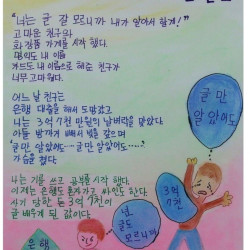 "너는 글 잘 모르니까 내가 알아서 할게!"
고마운 친구와
화장품 가게를 시작 했다.
명의도 내 이름
카드도 내 이름으로 해준 친구가
너무 고마웠다.
어느 날 친구는
은행 대출을 해서 도망갔고
나는 3억 7천 만원의 날벼락을 맞았다
아들 방까지 빼서 빚을 갚으며
"글만 알았어도…글만 알았어도…"
가슴을 쳤다
나는 기를 쓰고 공부를 시작 했다.
이제는 은행도 혼자가고 싸인도 한다
사기 당한 돈 3억 7천이
글 배우게 된 값이다
글 만
알았어도
3억
7천
넌
글도
모르니까
은행